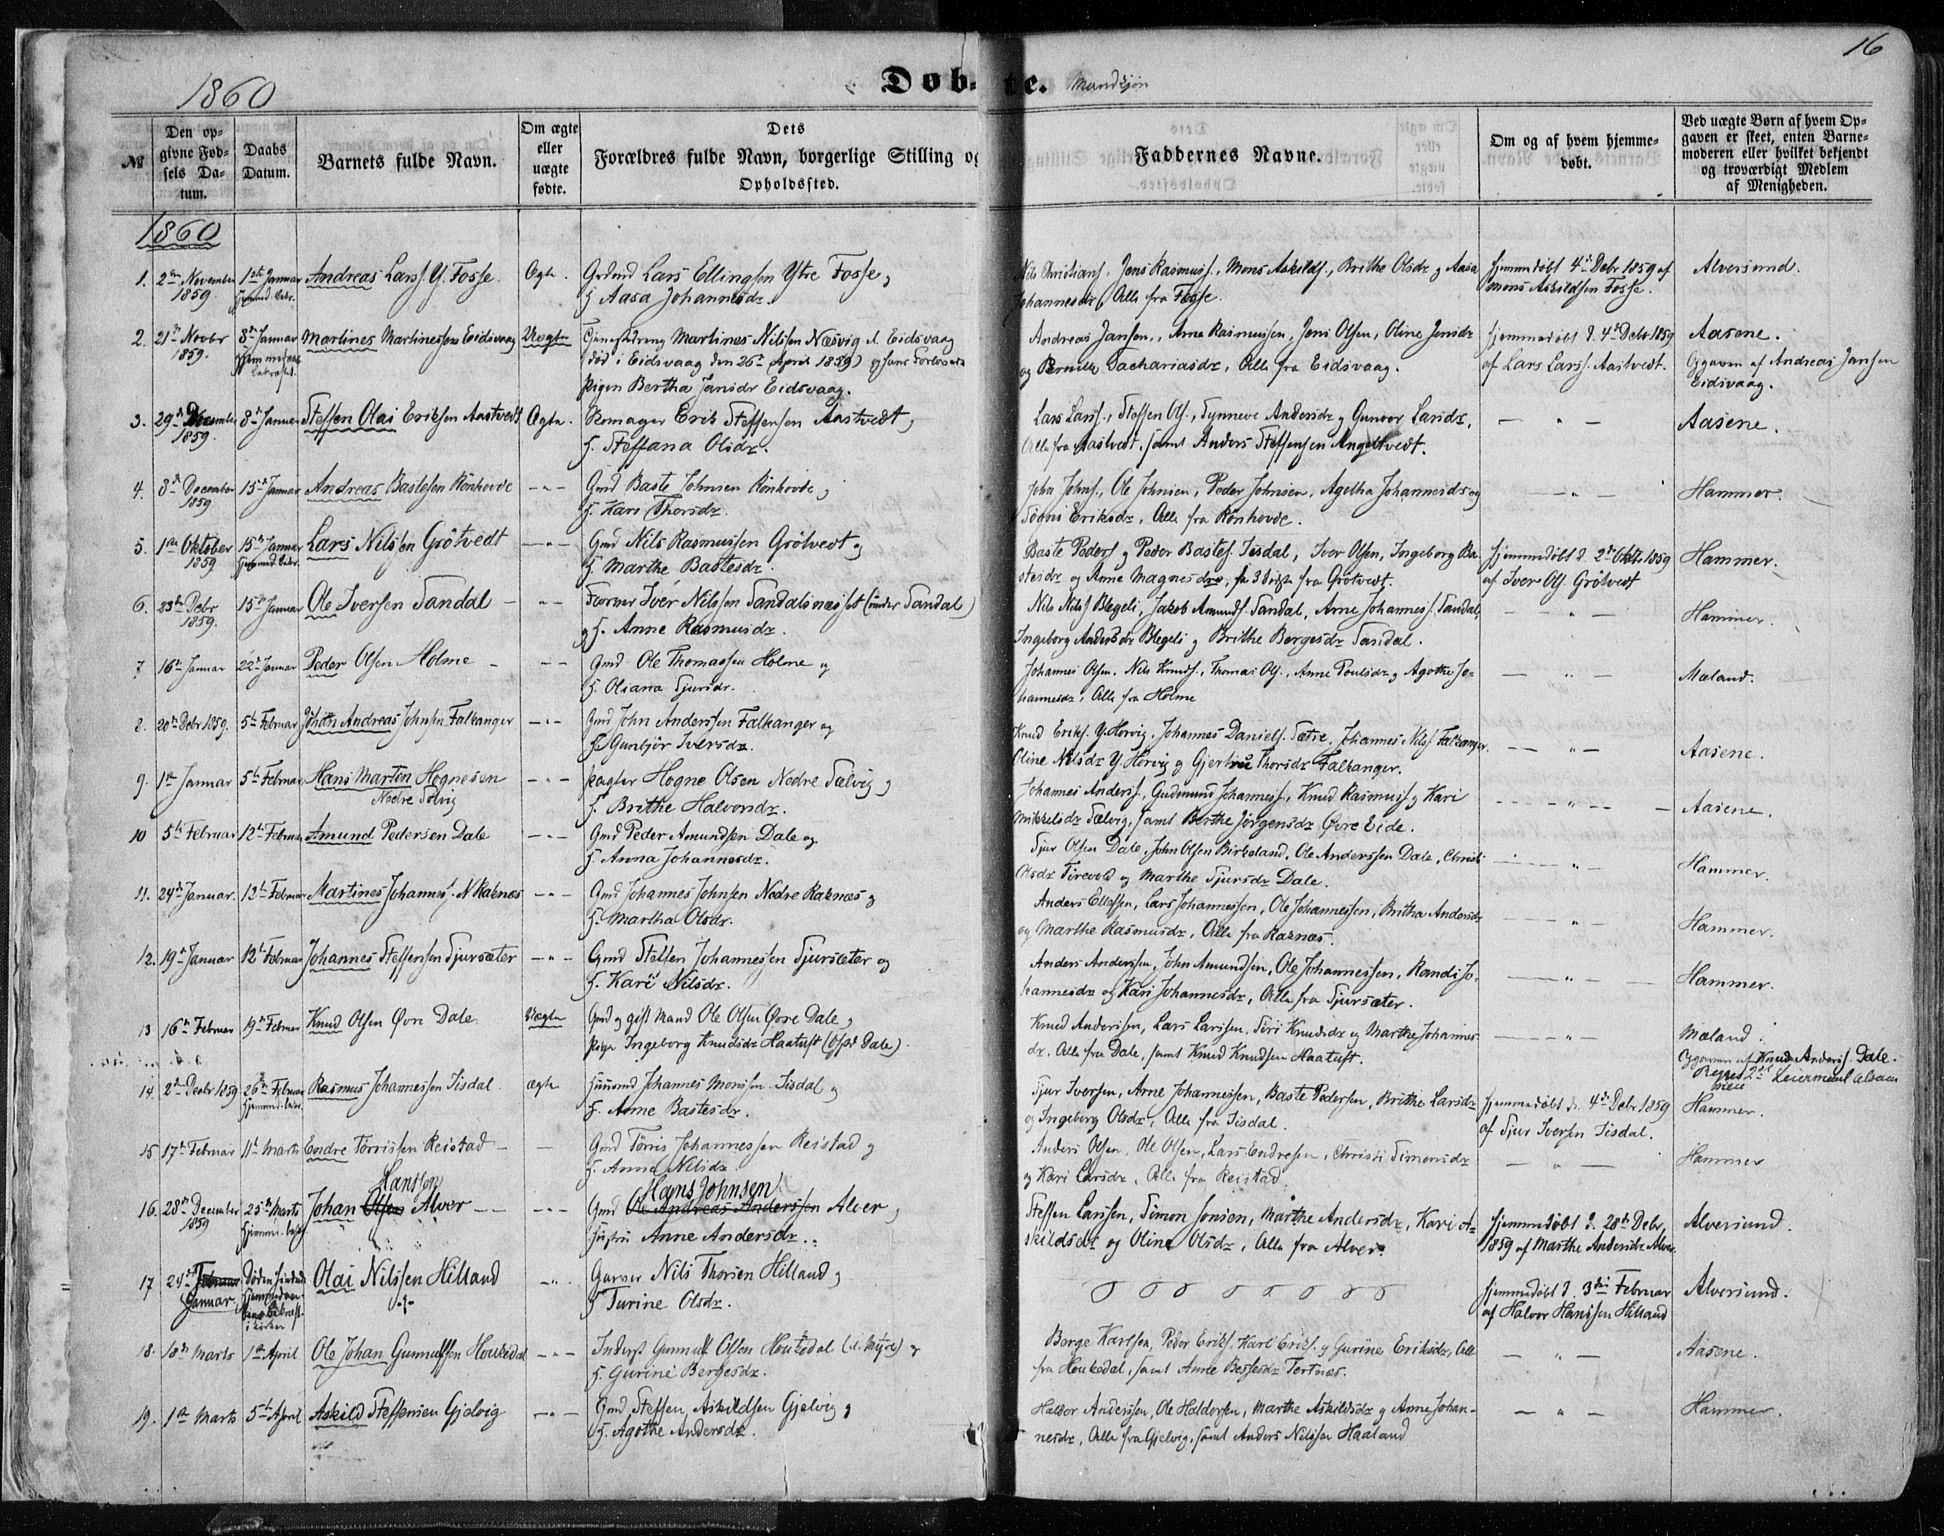 16
1860
Døbte. Mandkjøn
№
Den opgivne Fødsels Datum.
Daabs Datum.
Barnets fulde Navn.
Om ægte eller uægte fødte.
Dets Forældres fulde Navn, borgerlige Stilling og Opholdssted.
Faddernes Navne.
Om og af hvem hjemmedøbt.
Ved uægte Børn af hvem Opgaven er skeet, enten Barnemoderen eller hvilket bekjendt og troværdigt Medlem af Menigheden.
1860
1. 2den November 1859 1ste Januar Andreas Larss. Y. Fosse. Ægte. Grdmd Lars Ellingsen Ytre Fosse,
H. Aasa Johannesdr.
Nils Christians., Jens Rasmuss., Mons Askilds., Brithe Olsdr og Aasa
Johannesdr, Alle fra Fosse.
Hjemmedøbt 4de Debr 1859 af
Mons Askildsen Fosse.
Alversund.
2. 21de Novbr 1859. 8de Januar Martines Martinessen Eidsvaag Uægte
Martines Nilsen Næsvig d. Eidsvaag
(død i Eidsvaag den 26de April 1859) og hans Forlovede
Pigen Bertha Jansdr Eidsvaag.
Andreas Jansen, Arne Rasmussen, Jens Olsen, Oline Jensdr
og Pernille Zachariasdr, Alle fra Eidsvaag.
Hjemmedøbt d. 4de Debr 1859
af Lars Larss. Aastvedt.
Aasene.
Opgaven af Andreas Jansen
Eidsvaag.
3. 29de December 1859. 8de Januar Steffen Olai Eriksen Aastvedt Ægte. Skomager Erik Steffensen Aastvedt,
H. Steffana Olsdr.
Lars Larss., Steffen Ols., Synneve Andersdr og Gunvor Larsdr,
Alle fra Aastvedt, samt Anders Steffensen Angeltvedt.
Aasene.
4. 8de December 1859 15de Januar Andreas Bastesen Rönhovde Gmd Baste Johnsen Rönhovde,
H. Kari Thorsdr.
John Johns., Ole Johnsen, Peder Johnsen, Agetha Johannesdr og
Eriksdr, Alle fra Rönhovde.
Hammer.
5. 1ste Oktober 1859 15de Januar Lars Nilsen Grötvedt Gmd Nils Rasmussen Grötvedt og
H. Marthe Bastesdr.
Baste Peders. og Peder Bastes. Isdal, Iver Olsen, Ingeborg Bastesdr
og Anne Magnesdr, fra Grötvedt.
Hjemmedøbt d. 2den Oktbr 1859
af Iver Ols. Grötvedt
Hammer.
6. 23de Debr 1859. 15de Januar Ole Iversen Tandal Iver Nilssen Tandalsnæsset (under Tandal)
og H. Anne Rasmusdr.
Nils Nils. Blegeli, Jakob Amunds. Tandal, Arne Johanness. Tandal,
Ingeborg Andersdr Blegeli og Brithe Børgesdr Tandal.
Hammer.
7 16de Januar 22de Januar Peder Olsen Holme Gmd Ole Thomassen Holme og
H. Oliana Sjursdr.
Johannes Olsen, Nils Knuds., Thomas Ols., Anne Poulsdr og Agothe Johannesdr,
Alle fra Holme
Mæland.
8. 20de Debr 1859. 5te Februar Johan Andreas Johnsen Falkanger Gmd John Anderssen Falkanger og
H. Guntjör Iversdr.
Knud Eriks. Y. Horvig, Johannes Daniels. Sætre, Johannes Nils. Falkanger,
Oline Nilsdr Y. Horvig og Gjertrue Thorsdr Falkanger.
Aasene.
9. 1ste Januar 5te Februar Hans Martin Hognesen
Nedre Sælvig
Pagter Hogne Olsen Nedre Sælvig,
H. Brithe Halvorsdr.
Johannes Anders., Gudmund Johanness., Knud Rasmuss. og Kari
Mikkelsdr Sælvig, samt Berthe Jørgensdr Øvre Eide.
Aasene.
10 5te Februar 12te Februar Amund Pedersen Dale Gmd Peder Amundsen Dale og
H. Anna Johannesdr.
Sjur Olsen Dale, John Olsen Birkeland, Ole Anderssen Dale, Christi
Olsdr Tirevold og Marthe Sjursdr Dale.
Hammer.
11. 24de Januar. 12te Februar Martines Johannes. N. Raknæs Gmd Johannes Johnsen Nedre Raknæs og
H. Martha Olsdr.
Anders Ellefsen, Lars Johannessen, Ole Johannessen, Britha Andersdr
og Marthe Rasmusdr, Alle fra Raknæs.
Hammer.
12. 19de Januar 12te Februar Johannes Steffensen Sjursæter Gmd Steffen Johannessen Sjursæter og
H. Kari Nilsdr.
Anders Anderssen, John Amundsen, Ole Johannessen, Randi Johannesdr
og Kari Johannesdr, Alle fra Sjursæter.
Hammer.
13 16de Februar 19de Februar Knud Olsen Øvre Dale. Uægte Gmd og gift Mand Ole Olsen Øvre Dale,
Pige Ingeborg Knudsdr Haatuft (Opst. Dale).
Knud Anderssen, Lars Larssen, Siri Knudsdr og Marthe Johannesdr,
Alle fra Dale, samt Knud Knudsen Haatuft.
Mæland.
Opgaven af Knud Anderss. Dale.
14. 2den Debr 1859 26de Februar Rasmus Johannessen Isdal ægte Huusmd Johannes Monssen Isdal og
H. Anne Bastesdr.
Sjur Iversen, Arne Johannessen, Baste Pedersen, Brithe Larsdr
og Ingeborg Olsdr, Alle fra Isdal.
Hjemmedøbt d. 4de Debr 1859
af Sjur Iversen Isdal.
Hammer.
15 17de Februar 11te Marts Endre Tørrissen Reistad Gmd Tørris Johannessen Reistad og
H. Anne Nilsdr.
Anders Olsen, Ole Olsen, Lars Endresen, Christi Simonsdr
og Kari Larsdr, Alle fra Reistad.
Hammer
16. 28de December 1859 25de Marts Johan Olsen Hanssen Alver Gmd Ole Andreas Anderssen Hans Johnsen Alver,
Hustru Anne Andersdr.
Steffen Larssen, Simon Jonsen, Marthe Andersdr, Kari Askildsdr
og Oline Olsdr, Alle fra Alver.
Hjemmedøbt d. 28de Debr.
1859 af Marthe Andersdr Alver.
Alversund.
17 24de Februar Januar. Olai Nilssen Hilland Garver Nils Thorsen Hilland,
H. Turine Olsdr.
Hjemmedøbt d. 3die Februar
af Halvor Hanssen Hilland
Alversund.
18. 18de Marts 1ste April Ole Johan Gunnulfsen Houkedal Inderst Gunnulf Olsen Houkedal (d. Myre)
H. Gurine Bergesdr.
Berge Karlsen, Peder Eriks., Karl Eriks. og Gurine Eriksdr, Alle
fra Houkedal, samt Anne Bessesdr Tertnæs.
Aasene.
19. 1ste Marts 5te April Askild Steffensen Gjelvig Gmd Steffen Askildsen Gjelvig,
H. Agothe Andersdr.
Haldor Anderssen, Ole Haldorsen, Marthe Askildsdr og Anne Johannesdr,
Alle fra Gjelvig, samt Anders Nilssen Haaland
Hammer.